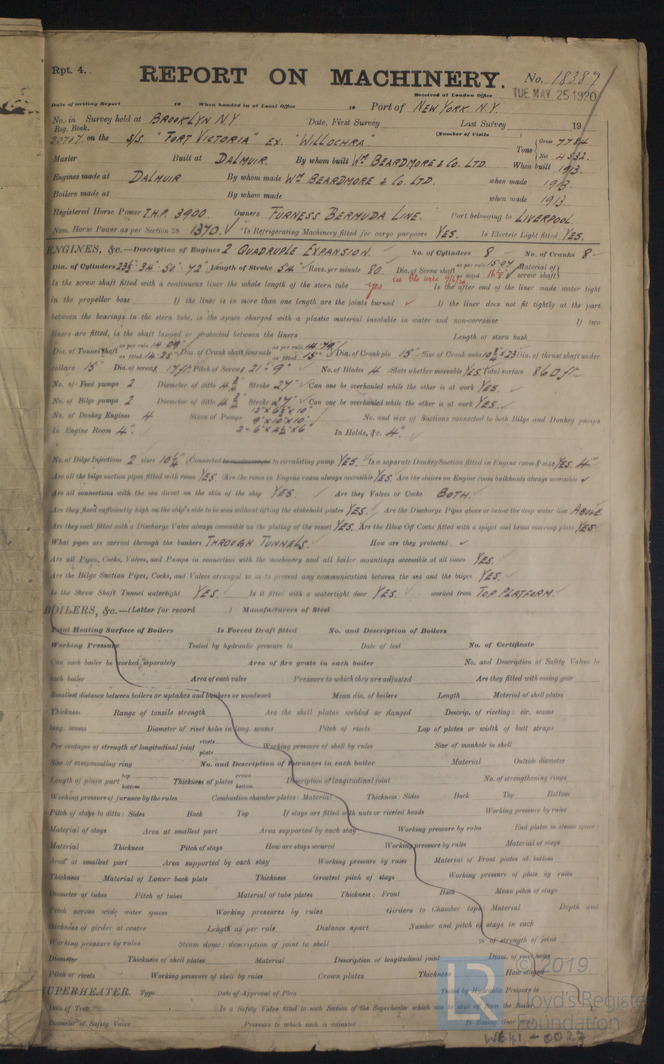 Rpt. 4.
REPORT ON MACHINERY.
No. 18387
Received at London Office
TUE MAY. 25 1920
Date of writing Report 19 When handed in at Local Office 19 Port of NEW YORK N.Y.
No. in Survey held at BROOKLYN N.Y. Date, First Survey Last Survey 19
Reg. Book. (Number of Visits
on the S/S. "FORT VICTORIA" EX. "WILLOCHRA" Tons Gross 7784 Net 4532
Master Built at DALMUIR By whom built Wm BEARDMORE & Co. LTD. When built 1913
Engines made at DALMUIR By whom made Wm BEARDMORE & Co. LTD. when made 1913
Boilers made at By whom made when made 1913
Registered Horse Power I.H.P. 3900. Owners FURNESS BERMUDA LINE. Port belonging to LIVERPOOL
Nom. Horse Power as per Section 28 1370. Is Refrigerating Machinery fitted for cargo purposes YES. Is Electric Light fitted YES.
ENGINES, &c.—Description of Engines 2 QUADRUPLE EXPANSION. No. of Cylinders 8 No. of Cranks 8
Dia. of Cylinders 23½" 34" 50" 72" Length of Stroke 54" Revs. per minute 80 Dia. of Screw shaft as per rule 15.07 Material of screw shaft
Is the screw shaft fitted with a continuous liner the whole length of the stern tube yes Is the after end of the liner made water tight
in the propeller boss If the liner is in more than one length are the joints burned If the liner does not fit tightly at the part
between the bearings in the stern tube, is the space charged with a plastic material insoluble in water and non-corrosive If two
liners are fitted, is the shaft lapped or protected between the liners Length of stern bush
Dia. of Tunnel shaft as per rule 14.09" as fitted 14.25" Dia. of Crank shaft journals as per rule 14.79" as fitted 15" Dia. of Crank pin 15" Size of Crank webs Dia. of thrust shaft under
collars 15" Dia. of screw 17 FT. Pitch of Screw 21'-9" No. of Blades 4 State whether moveable YES. Total surface 86 □ ft.
No. of Feed pumps 2 Diameter of ditto Stroke 27" Can one be overhauled while the other is at work YES.
No. of Bilge pumps 2 Diameter of ditto Stroke 27" Can one be overhauled while the other is at work YES.
No. of Donkey Engines 4 Sizes of Pumps No. and size of Suctions connected to both Bilge and Donkey pumps
In Engine Room 4". In Holds, &c. 4".
No. of Bilge Injections 2 sizes Connected to condenser, or to circulating pump YES. Is a separate Donkey Suction fitted in Engine room & size YES. 4"
Are all the bilge suction pipes fitted with roses YES. Are the roses in Engine room always accessible YES. Are the sluices on Engine room bulkheads always accessible
Are all connections with the sea direct on the skin of the ship YES. Are they Valves or Cocks BOTH.
Are they fixed sufficiently high on the ship's side to be seen without lifting the stokehold plates YES. Are the Discharge Pipes above or below the deep water line ABOVE
Are they each fitted with a Discharge Valve always accessible on the plating of the vessel YES. Are the Blow Off Cocks fitted with a spigot and brass covering plate YES
What pipes are carried through the bunkers THROUGH TUNNELS. How are they protected
Are all Pipes, Cocks, Valves, and Pumps in connection with the machinery and all boiler mountings accessible at all times YES.
Are the Bilge Suction Pipes, Cocks, and Valves arranged so as to prevent any communication between the sea and the bilges YES.
Is the Screw Shaft Tunnel watertight YES. Is it fitted with a watertight door YES. worked from TOP PLATFORM.
BOILERS, &c.—(Letter for record ) Manufacturers of Steel
Total Heating Surface of Boilers Is Forced Draft fitted No. and Description of Boilers
Working Pressure Tested by hydraulic pressure to Date of test No. of Certificate
Can each boiler be worked separately Area of fire grate in each boiler No. and Description of Safety Valves to
each boiler Area of each valve Pressure to which they are adjusted Are they fitted with easing gear
Smallest distance between boilers or uptakes and bunkers or woodwork Mean dia. of boilers Length Material of shell plates
Thickness Range of tensile strength Are the shell plates welded or flanged Descrip. of riveting: cir. seams
long. seams Diameter of rivet holes in long. seams Pitch of rivets Lap of plates or width of butt straps
Per centages of strength of longitudinal joint rivets plate Working pressure of shell by rules Size of manhole in shell
Size of compensating ring No. and Description of Furnaces in each boiler Material Outside diameter
Length of plain part top bottom Thickness of plates crown bottom Description of longitudinal joint No. of strengthening rings
Working pressure of furnace by the rules Combustion chamber plates: Material Thickness: Sides Back Top Bottom
Pitch of stays to ditto: Sides Back Top If stays are fitted with nuts or riveted heads Working pressure by rules
Material of stays Area at smallest part Area supported by each stay Working pressure by rules End plates in steam space:
Material Thickness Pitch of stays How are stays secured Working pressure by rules Material of stays
Area at smallest part Area supported by each stay Working pressure by rules Material of Front plates at bottom
Thickness Material of Lower back plate Thickness Greatest pitch of stays Working pressure of plate by rules
Diameter of tubes Pitch of tubes Material of tube plates Thickness: Front Back Mean pitch of stays
Pitch across wide water spaces Working pressures by rules Girders to Chamber tops: Material Depth and
thickness of girder at centre Length as per rule Distance apart Number and pitch of stays in each
Working pressure by rules Steam dome: description of joint to shell % of strength of joint
Diameter Thickness of shell plates Material Description of longitudinal joint Diam. of rivet holes
Pitch of rivets Working pressure of shell by rules Crown plates Thickness How stayed
SUPERHEATER. Type Date of Approval of Plan Tested by Hydraulic Pressure to
Date of Test Is a Safety Valve fitted to each Section of the Superheater which can be shut off from the Boiler
Diameter of Safety Valve Pressure to which each is adjusted Is Easing Gear
© 2019
LR
Lloyd's Register
Foundation
W641-0027